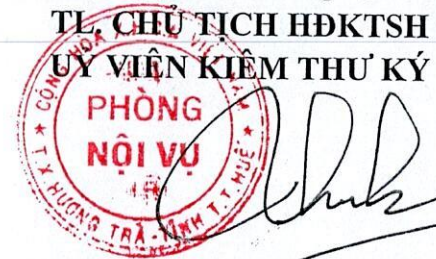 TL. CHỦ TỊCH HĐKTSH
UỶ VIÊN KIÊM THƯ KÝ
PHÒNG
NỘI VỤ
T.X HƯƠNG TRÀ - TỈNH T.T HUẾ